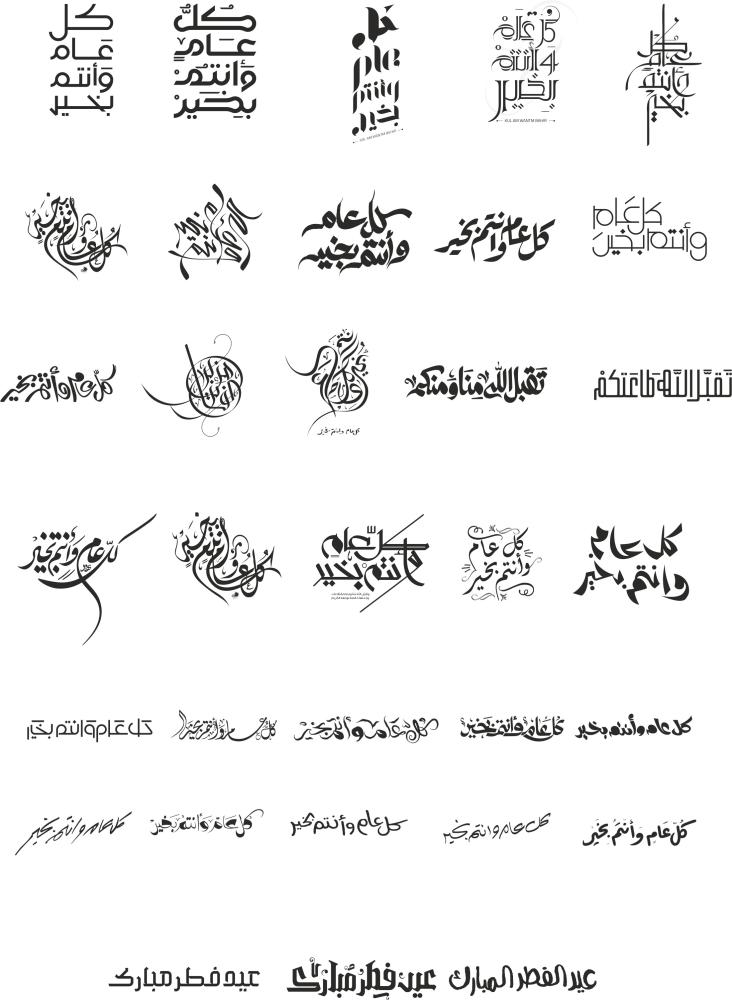 كل
عام
وأنتم
بخير
كُلُّ
عَامٍ
وَأنتُمْ
بِخَيرٍ
عام
وأنتم
بخير
KUL AM WANTM BKHIR
كل عام
وأنتم
بخير
KUL AM WANTM BKHIR
كل
عام
وأنتم
بخير
كل عام
وأنتم بخير
كل عام وأنتم بخير
كل عَام
وأنتم بخيرَ
كل عام وأنتم بخير
كل عام وأنتم بخير
تقبل الله منا ومنكم
تَقبَّل اللَّه طاعَتكمْ
كل عام وأنتم بخير
كل عام وأنتم بخير
كلّ عام
وأنتم بخير
كل عام
وأنتم بخير
كل عام
وانتم بخير
كل عَام وَانتم بخَير
كل عام وأنتم بخير
كل عام وأنتم بخير
كُل عَامٌ وأنتم بخير
كل عام وأنتم بخير
كل عام وانتم بخير
كل عَام وَأنتم بَخير
كل عام وأنتم بخير
كل عام وانتم بخير
كُلّ عَامٍ وأنتُم بخير
عيد فطر مبارك
عيد فِطر مُبارك
عيد الفطر المبارك